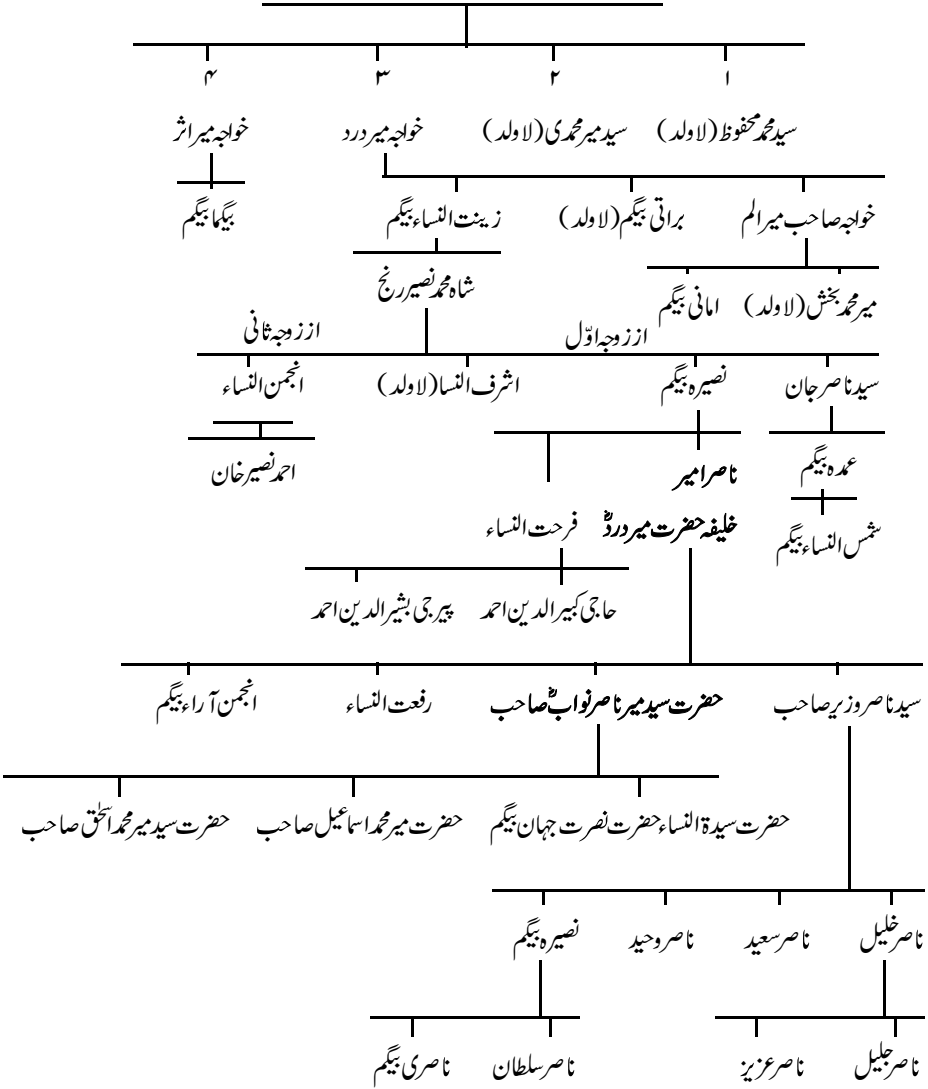 ۱ ۲ ۳ ۴
سید محمد محفوظ (لاولد) سید میر محمدی (لاولد) خواجہ میر درد خواجہ میر اثر
خواجہ صاحب میر الم براتی بیگم (لاولد) زینت النساء بیگم بیگما بیگم
میر محمد بخش (لاولد) امانی بیگم شاہ محمد نصیر رنج
از زوجہ اوّل از زوجہ ثانی
سید ناصر جان نصیرہ بیگم اشرف النسا (لاولد) انجمن النساء
عمدہ بیگم ناصر امیر احمد نصیر خان
شمس النساء بیگم خلیفہ حضرت میر دردؒ فرحت النساء
حاجی کبیر الدین احمد پیر جی بشیر الدین احمد
سید ناصر وزیر صاحب حضرت سید میر ناصر نوابؓ صاحب رفعت النساء انجمن آراء بیگم
حضرت سیدۃ النساء حضرت نصرت جہان بیگم حضرت میر محمد اسماعیل صاحب حضرت سید میر محمد اسحٰق صاحب
ناصر خلیل ناصر سعید ناصر وحید نصیرہ بیگم
ناصر جلیل ناصر عزیز ناصر سلطان ناصری بیگم